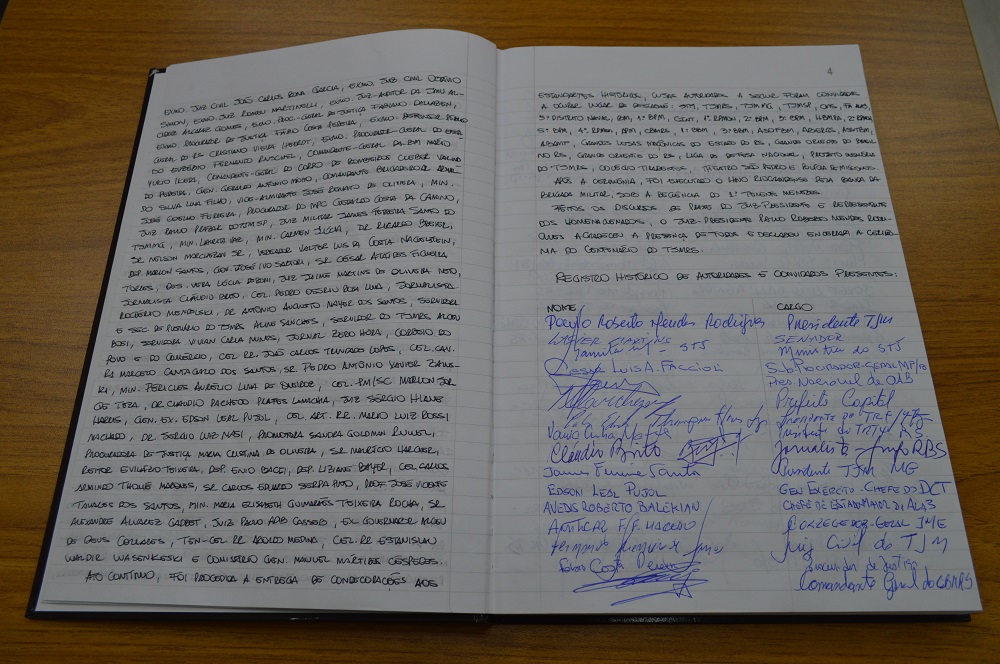 EXMO. JUIZ CIVIL JOÃO CARLOS BONA GARCIA, EXMO. JUIZ CIVIL OCTÁVIO
SIMON, EXMO. JUIZ ROMEU MARTINELLI, EXMO. JUIZ-AUDITOR DA JMU AL-
CIDES ALCARAZ GOMES, EXMO. PROC.-GERAL DE JUSTIÇA FABIANO DALLAZEN,
EXMO. PROCURADOR DE JUSTIÇA FÁBIO COSTA PEREIRA, EXMO. DEFENSOR PÚBLICO
GERAL DO RS CRISTIANO VIEIRA HEERDT, EXMO. PROCURADOR-GERAL DO ESTADO
DO EUSÉBIO FERNANDO RUSCHEL, COMANDANTE-GERAL DA BM MÁRIO
YUKIO IKEDA, COMANDANTE-GERAL DO CORPO DE BOMBEIROS CLEBER VALINO
DO PEREIRA, GEN. GERALDO ANTONIO MIOTTO, COMANDANTE BRIGADEIRO-AR
DO SILVA LIMA FILHO, VICE-ALMIRANTE JOSÉ RENATO DE OLIVEIRA, MIN.
JOSÉ COELHO FERREIRA, PROCURADOR DO MPC GERALDO COSTA DA CAMINO,
JUIZ PAULO PRAZAK DO TJMSP, JUIZ MILITAR JAMES FERREIRA SANTOS DO
TJMMG, MIN. LAURITA VAZ, MIN. CARMEN LÚCIA, DR. RICARDO BREIER,
SR. NELSON MARCHEZAN JR., VEREADOR VALTER LUIS DA COSTA NAGELSTEIN,
DEP. MARLON SANTOS, GEN. JOSÉ IVO SARTORI, SR. CÉSAR ATAÍDES FIGUEIRA
TORRES, DES. VERA LÚCIA DEBONI, JUIZ JAIME MARTINS DE OLIVEIRA NETO,
JORNALISTA CLÁUDIO BRITO, CEL. PEDRO OSÓRIO ROSA LIMA, JORNALISTA
ROGÉRIO MENDELSKI, DR. ANTÔNIO AUGUSTO MAYER DOS SANTOS, SERVIDORA
E SEC. DE PLENÁRIO DO TJMRS ALINE SANCHES, SERVIDOR DO TJMRS ALCEU
BOSI, SERVIDORA VIVIAN CARLA NUNES, JORNAL ZERO HORA, CORREIO DO
POVO E DO COMÉRCIO, CEL. RR. JOÃO CARLOS TRINDADE LOPES, CEL. CAV.
R1 MARCELO CANTAGALO DOS SANTOS, SR. PEDRO ANTÔNIO XAVIER
MIN. PÉRICLES AURÉLIO LIMA DE QUEIROZ, CEL. PM/SC MARLON JOR
GE TEZA, DR. CLAUDIO PACHECO PRATES LAMACHIA, JUIZ SÉRGIO HIANE
HARRIS, GEN. EX. EDSON LEAL PUJOL, CEL. ART. RR. MARIO LUIZ ROSSI
MACHADO, DR. SÉRGIO LUIZ NASI, PROMOTORA SANDRA GOLDMAN RUWEL,
PROCURADORA DE JUSTIÇA MARIA CRISTINA DE OLIVEIRA, SR. MAURÍCIO HARGER,
REITOR EVILÁZIO TEIXEIRA, DEP. ENIO BACCI, DEP. LIZIANE BAYER, CEL. CARLOS
ARMINDO THOMÉ MARQUES, SR. CARLOS EDUARDO SERPA PINTO, PROF. JOSÉ VICENTE
TAVARES DOS SANTOS, MIN. MARIA ELISABETH GUIMARÃES TEIXEIRA ROCHA, SR.
ALEXANDRE ALVAREZ GADRET, JUIZ PAULO ADIB CASSEB, EX GOVERNADOR ALCEU
DE DEUS COLLARES, TEN-CEL RR AROLDO MEDINA, CEL. RR ESTANISLAU
WALDIR WASENKESKI E COMISÁRIO GEN. MANUEL MÁRTIRES CÉSPEDES.
ATO CONTÍNUO, FOI PROCEDIDA A ENTREGA DE CONDECORAÇÕES AOS
4
ESTANDARTES HISTÓRICOS, CUJAS AUTORIDADES A SEGUIR FORAM CONVIDADAS
A OCUPAR LUGAR DE DESTAQUE: STM, TJMRS, TJMMG, TJMSP, CMS, V COMAR,
5º DISTRITO NAVAL, BM, 1º BPM, 2º BPM, 3º BPM,
5º BPM, 4º RPMON, APM, CBMRS, 1º BBM, 3º BBM, ASOFBM, ABERGS, ASSTBM,
ABAMF, GRANDES LOJAS MAÇÔNICAS DO ESTADO DO RS, GRANDE ORIENTE DO BRASIL
NO RS, GRANDE ORIENTE DO RS, LIGA DE DEFESA NACIONAL, PROJETO MEMÓRIA
DO TJMRS, COLÉGIO TIRADENTES, THEATRO SÃO PEDRO E
APÓS A CERIMÔNIA, FOI EXECUTADO O HINO RIOGRANDENSE PELA BANDA DA
BRIGADA MILITAR, SOB A REGÊNCIA DO 1º TENENTE MENEZES.
FEITOS OS DISCURSOS DE PRAXE DO JUIZ-PRESIDENTE E REPRESENTANTE
DOS HOMENAGEADOS, O JUIZ-PRESIDENTE PAULO ROBERTO MENDES RODRI-
GUES AGRADECEU A PRESENÇA DE TODOS E DECLAROU ENCERRADA A CERIMÔ-
NIA DO CENTENÁRIO DO TJMRS.
REGISTRO HISTÓRICO DE AUTORIDADES E CONVIDADOS PRESENTES:
NOME CARGO
Paulo Roberto Mendes Rodrigues Presidente TJM
LASIER MARTINS SENADOR
Laurita Vaz - STJ Ministra do STJ
Cesar LUIS A. FACCIOLI SUBPROCURADOR-GERAL MP/RS
Pres. Nacional da OAB
Prefeito Capital
Thompson Flores Presidente do TRF/4ª
Cláudio Brito Jornalista Grupo RBS
James Ferreira Santos Presidente TJM MG
EDSON LEAL PUJOL GEN EXÉRCITO - CHEFE DO DCT
AVEDS ROBERTO BALEKIAN CHEFE DE ESTADO MAIOR DA ALA3
AMILCAR F. F. MACEDO CORREGEDOR-GERAL JME
Juiz Civil do TJM
Fábio Costa Pereira Procurador de Justiça
Comandante Geral do CBMRS